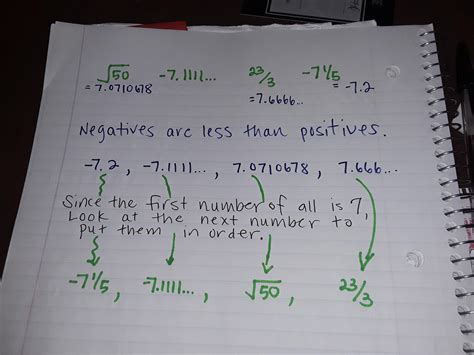 √50 -7.1111... 23/3 -7 1/5
= 7.0710678 = 7.6666... = -7.2
Negatives are less than positives.
-7.2, -7.1111..., 7.0710678, 7.666...
Since the first number of all is 7,
Look at the next number to
put them in order.
-7 1/5, -7.1111..., √50, 23/3